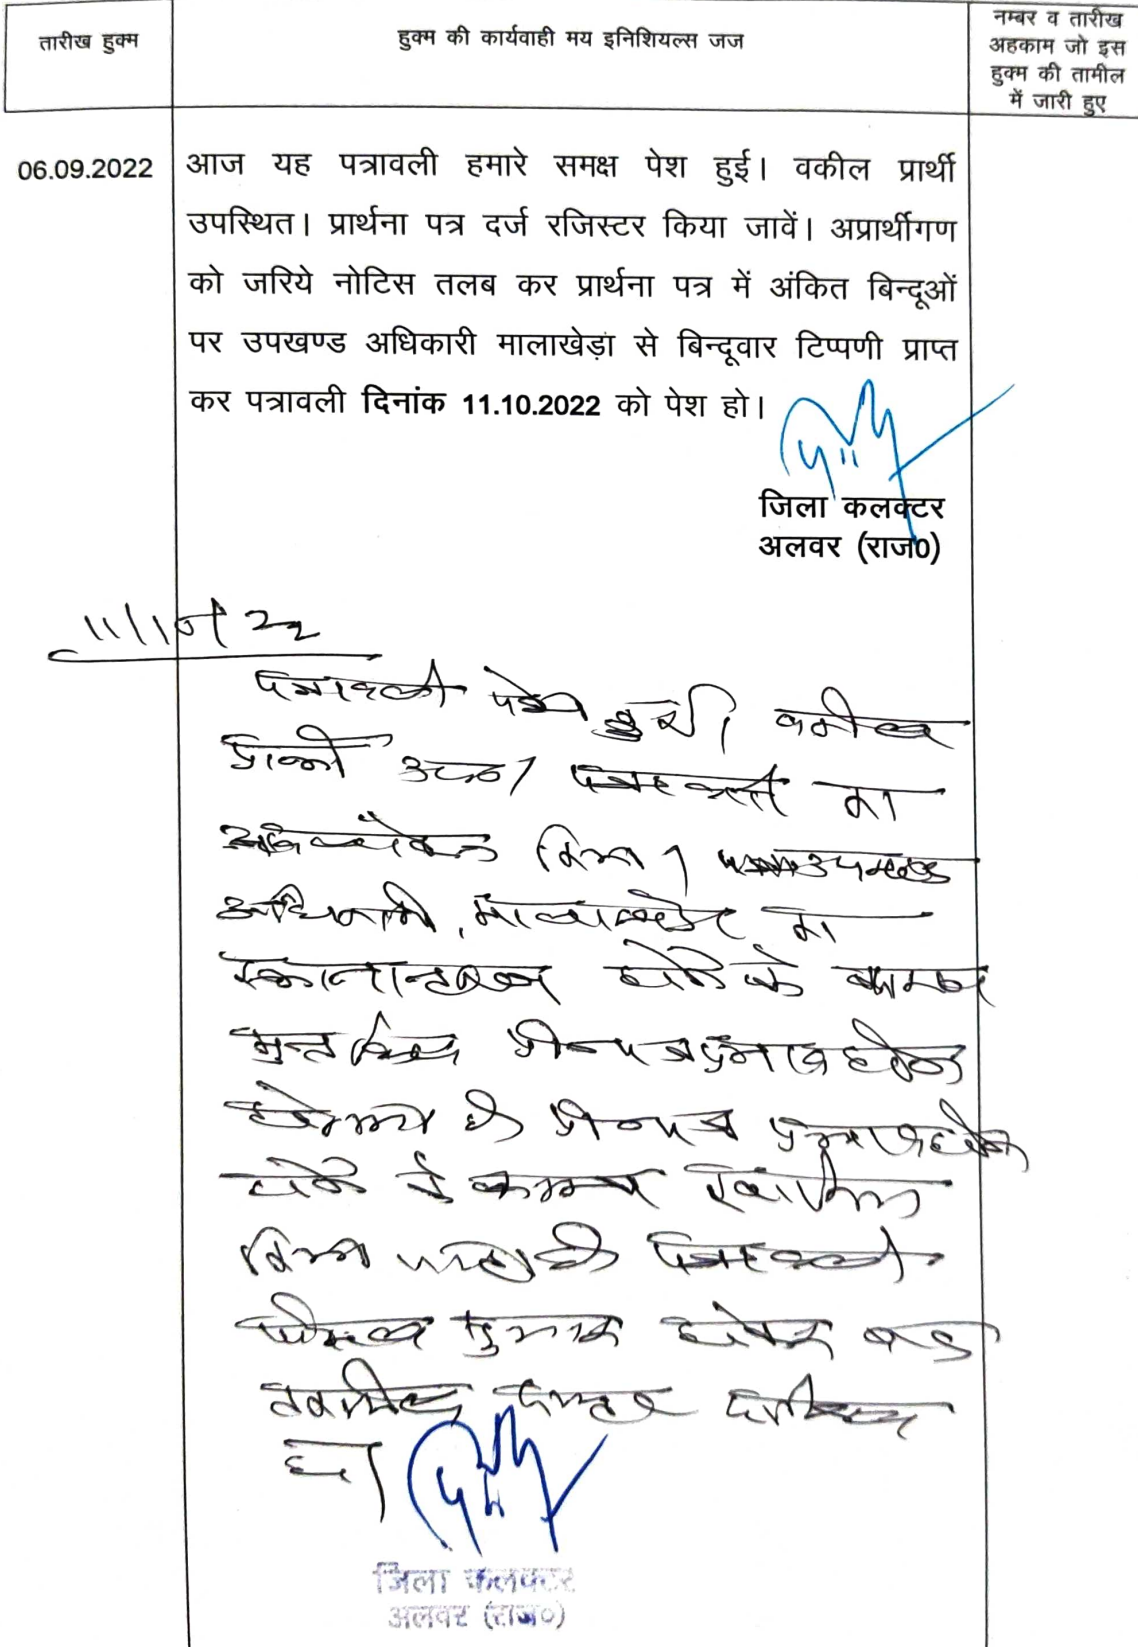 तारीख हुक्म
हुक्म की कार्यवाही मय इनिशियल्स जज
नम्बर व तारीख
अहकाम जो इस
हुक्म की तामील
में जारी हुए
06.09.2022
आज यह पत्रावली हमारे समक्ष पेश हुई। वकील प्रार्थी
उपस्थित। प्रार्थना पत्र दर्ज रजिस्टर किया जावें। अप्रार्थीगण
को जरिये नोटिस तलब कर प्रार्थना पत्र में अंकित बिन्दूओं
पर उपखण्ड अधिकारी मालाखेड़ा से बिन्दूवार टिप्पणी प्राप्त
कर पत्रावली दिनांक 11.10.2022 को पेश हो।
जिला कलक्टर
अलवर (राज०)
11/10/22
पत्रावली पेश हुई। वकील
प्रार्थी उप०। पत्रावली का
अवलोकन किया। उपखण्ड
अधिकारी, मालाखेड़ा का
स्थानान्तरण होने के कारण
होने के कारण खारिज
किया जाता है। पत्रावली
फैसल शुमार होकर बाद
तकमील दफ्तर दाखिल
हो।
जिला कलक्टर
अलवर (राज०)